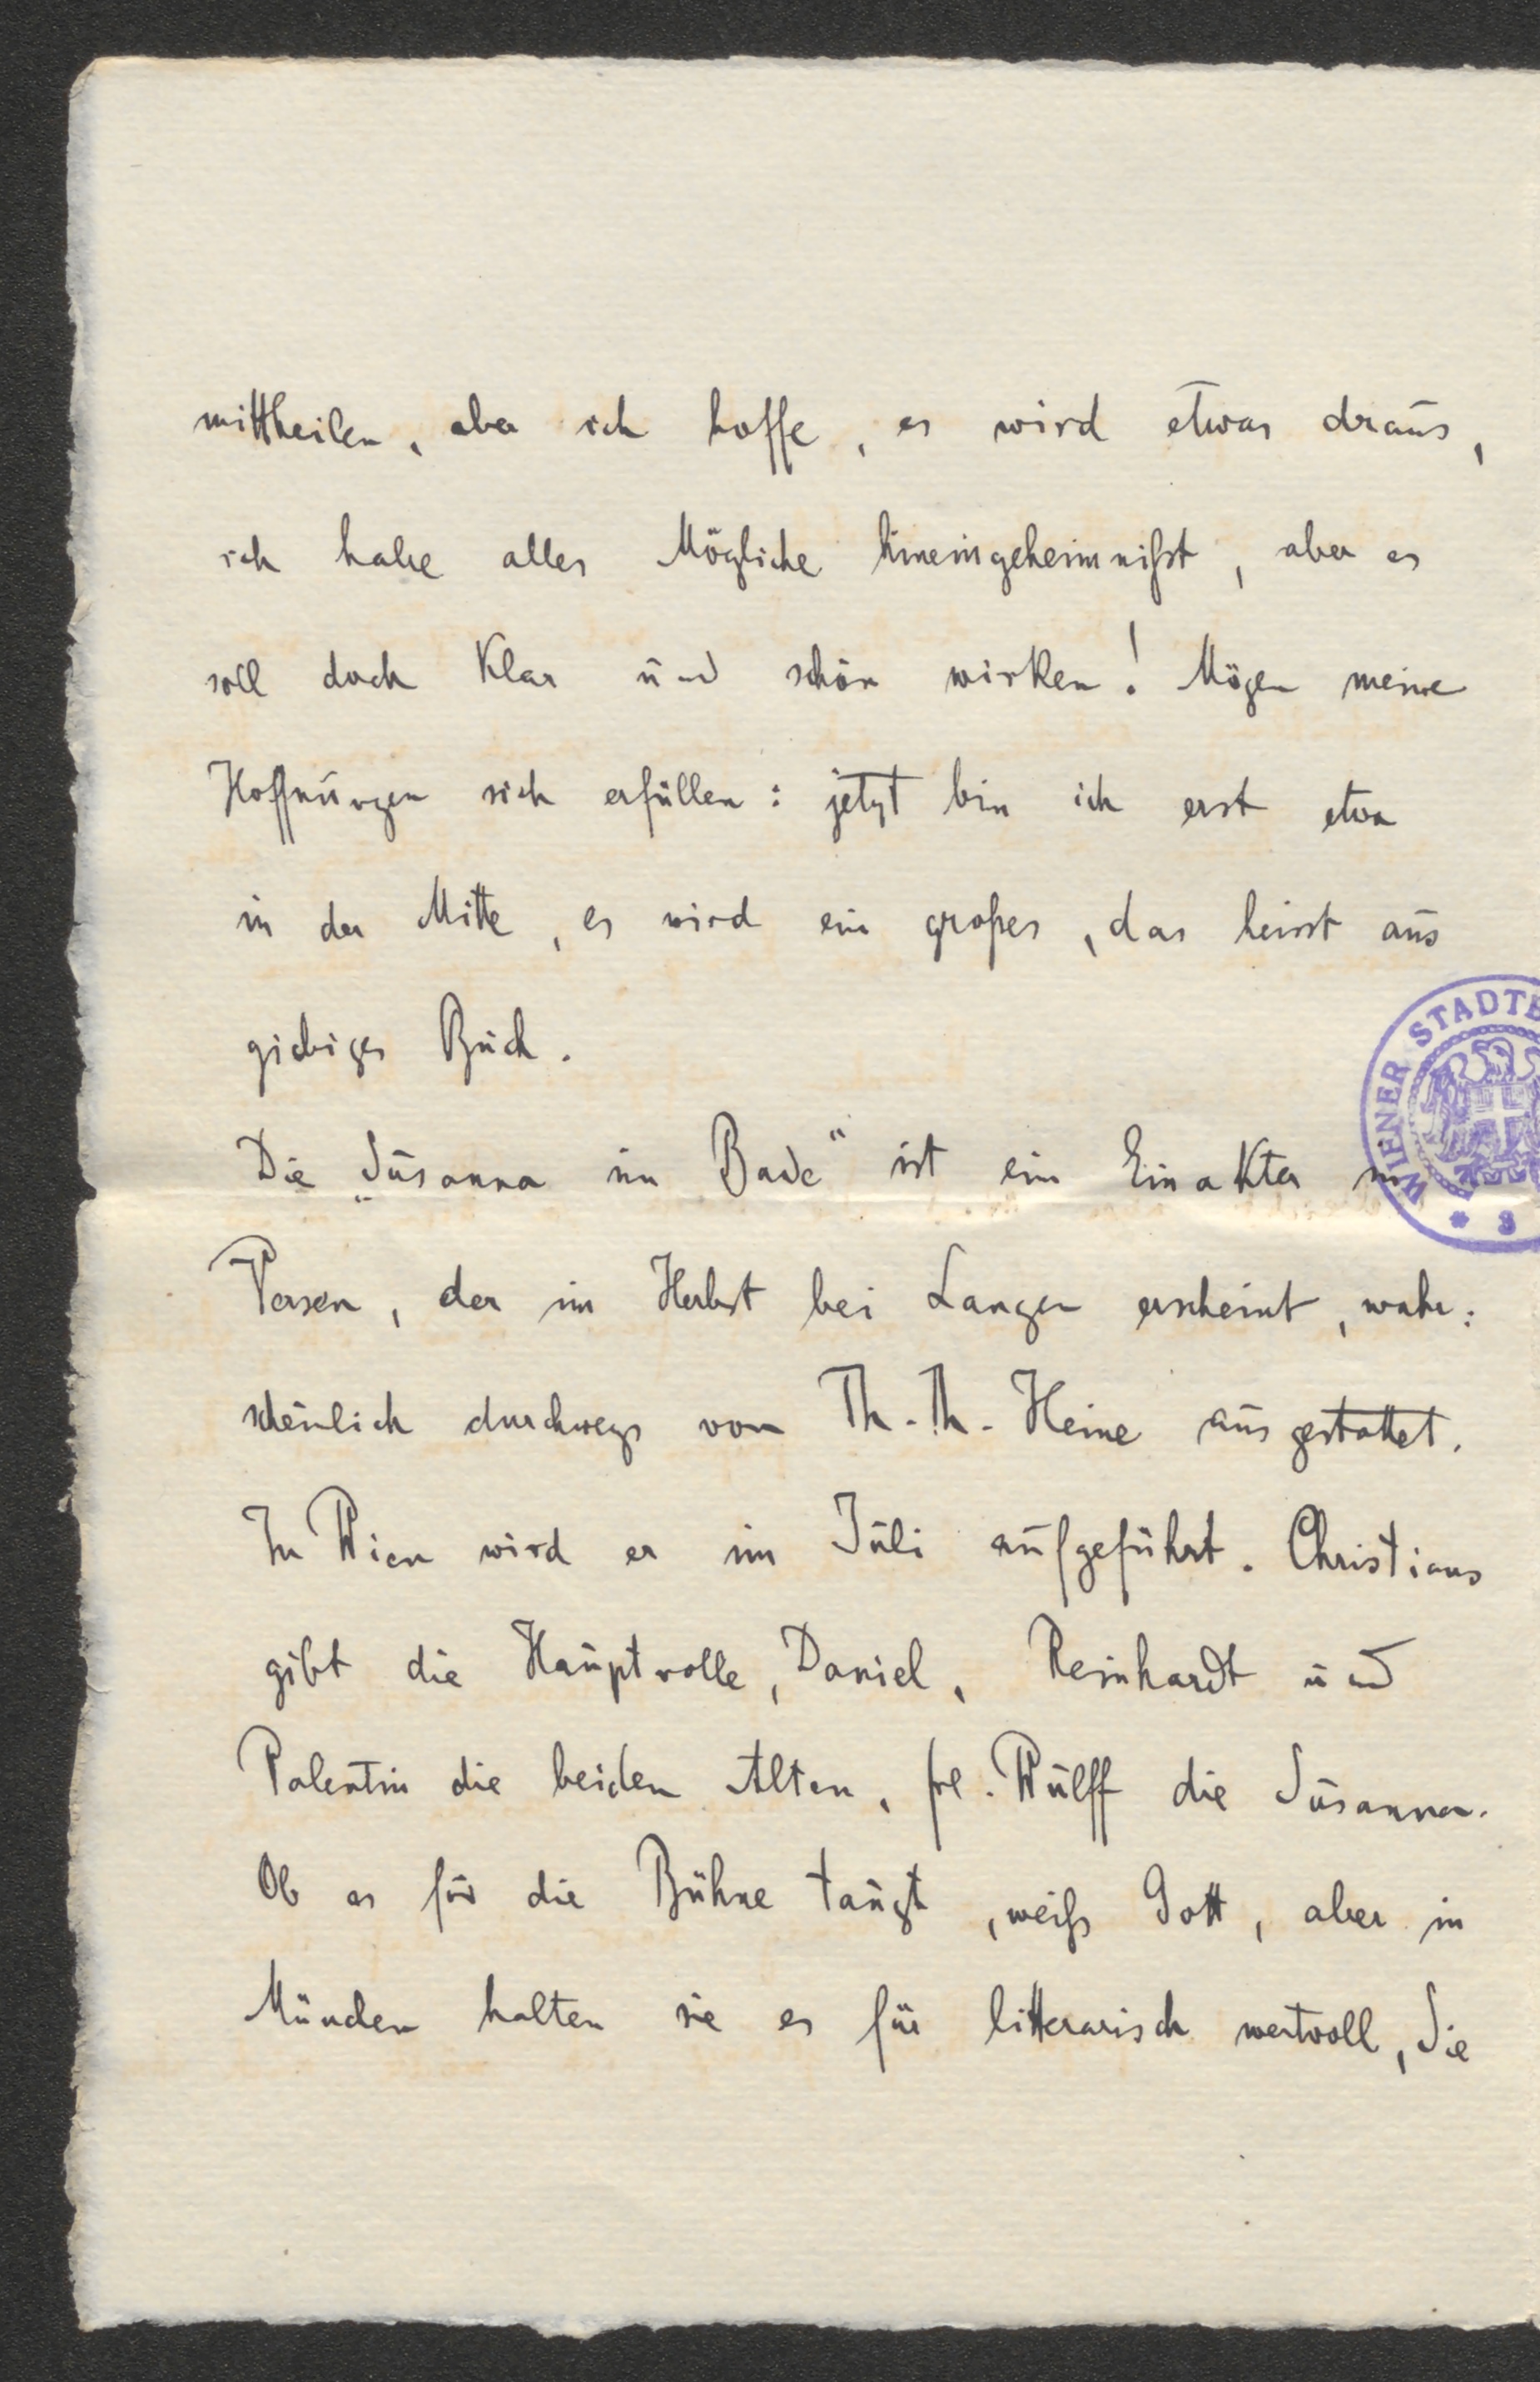 mittheilen, aber ich hoffe, es wird etwas draus,
ich habe alles Mögliche hineingeheimnißt, aber es
soll doch klar und schön wirken! Mögen meine
Hoffnungen sich erfüllen: jetzt bin ich erst etwa
in der Mitte, es wird ein großes, das heisst aus
giebiges Buch.
Die „Susanna im Bade“ ist ein Einakter in
Versen, der im Herbst bei Langen erscheint, wahr:
scheinlich durchwegs von Th. Th. Heine ausgestattet.
In Wien wird er im Juli aufgeführt. Christians
gibt die Hauptrolle, Daniel, Reinhardt und
Valentin die beiden Alten, frl. Wulff die Susanna.
Ob es für die Bühne taugt, weiß Gott, aber in
München halten sie es für litterarisch wertvoll, Sie
WIENER STADTB
* 3